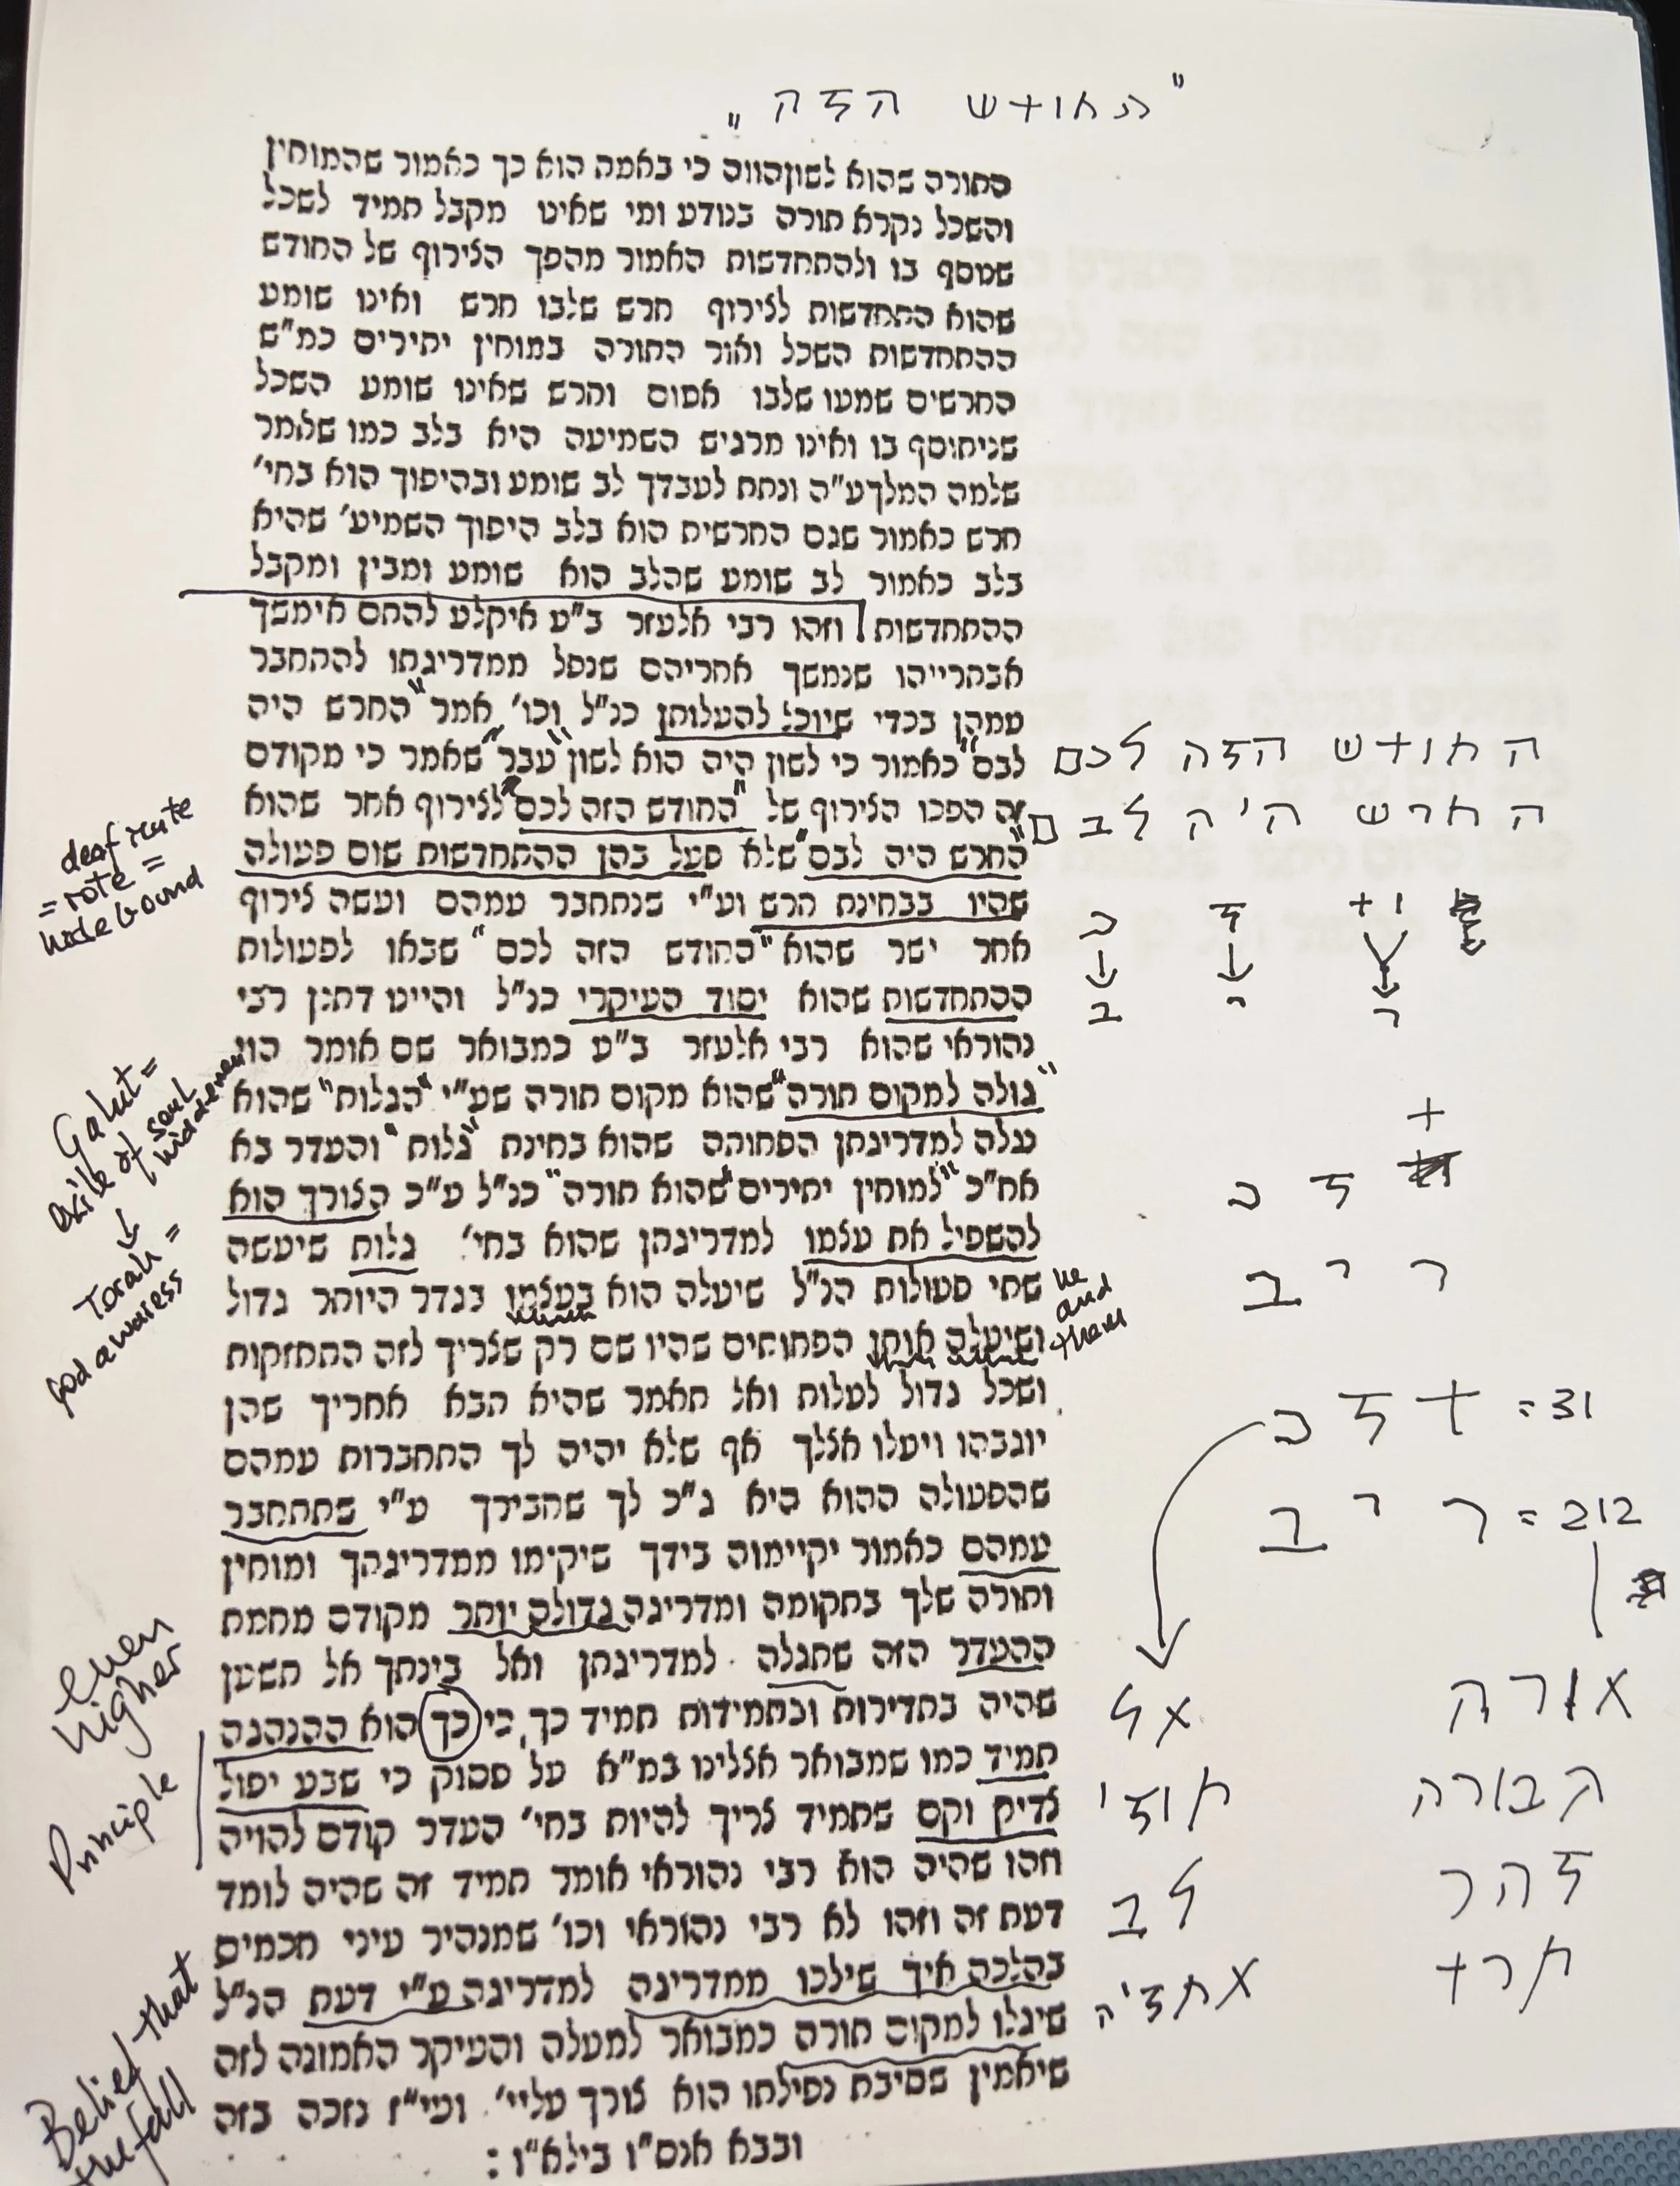 "החודש הזה"
התורה שהוא לשון הווה כי באמת הוא כך כאמור שהמוחין
והשכל נקרא תורה כנודע ומי שאינו מקבל תמיד לשכל
שנוסף בו ולהתחדשות האמור מהפך הצירוף של החודש
שהוא התחדשות לצירוף חרש שלבו חרש ואינו שומע
ההתחדשות השכל ואור התורה במוחין יתירים כמ"ש
החרשים שמעו שלבו אטום וחרש שאינו שומע השכל
שניתוסף בו ואינו מרגיש השמיעה היא בלב כמו שאמר
שלמה המלך ע"ה ונתת לעבדך לב שומע ובהיפוך הוא בחי'
חרש כאמור שגם החרשית הוא בלב היפוך השמיע' שהיא
בלב כאמור לב שומע שהלב הוא שומע ומבין ומקבל
ההתחדשות וזהו רבי אלעזר ב"ע איקלע להתם אימשך
אבתרייהו שנמשך אחריהם שנפל ממדריגתו להתחבר
עמהן בכדי שיוכל להעלותן כנ"ל וכו' אמר "החרש היה
לבם" כאמור כי לשון היה הוא לשון "עבר" שאמר כי מקודם
זה הפכו הצירוף של "החודש הזה לכם" לצירוף אחר שהוא
"החרש היה לבם" שלא פעל בהן ההתחדשות שום פעולה
שהיו בבחינת חרש וע"י שנתחבר עמהם ועשה צירוף
אחר ישר שהוא "החודש הזה לכם" שבאו לפעולות
ההתחדשות שהוא יסוד העיקרי כנ"ל והיינו דתנן רבי
נהוראי שהוא רבי אלעזר ב"ע כמבואר שם אומר הוי
"גולה למקום תורה" שהוא מקום תורה שע"י "הגלות" שהוא
עלה למדריגתן הפחותה שהוא בחינת "גלות" והעדר בא
אח"כ "למוחין יתירים" שהוא תורה" כנ"ל ע"כ הצורך הוא
להשפיל את עצמו למדריגתן שהוא בחי' גלות שיעשה
שתי פעולות הנ"ל שיעלה הוא בעצמו בגדר היותר גדול
ושיעלה אותן הפחותים שהיו שם רק שצריך לזה התחזקות
ושכל גדול לעלות ואל תאמר שהיא תבא אחריך שהן
יוגבהו ויעלו אצלך אף שלא יהיה לך התחברות עמהם
שהפעולה ההוא היא ג"כ לך שחבירך ע"י שתתחבר
עמהם כאמור יקיימוה בידך שיקימו ממדריגתך ומוחין
ותורה שלך בתקומה ומדריגה גדולה יותר מקודם מחמת
ההעדר הזה שתגלה למדריגתן ואל בינתך אל תשען
שהיה בתדירות ובתמידות תמיד כך, כי כך הוא ההנהגה
תמיד כמו שמבואר אצלינו במ"א על פסוק כי שבע יפול
צדיק וקם שתמיד צריך להיות בחי' העדר קודם להויה
וזהו שהיה הוא רבי נהוראי אומר תמיד זה שהיה לומד
דעת זה וזהו לא רבי נהוראי וכו' שמנהיר עיני חכמים
בהלכה איך שילכו ממדריגה למדריגה ע"י דעת הנ"ל
שיגלו למקום תורה כמבואר למעלה והעיקר האמונה לזה
שיאמין שסיבת נפילתו הוא צורך עליי' ועי"ז נזכה בזה
ובבא אנס"ו בילא"ו :
החודש הזה לכם
החרש הי'ה לבם
ו ד ז כ
ר י ב
ד
ד ז כ
ר י ב
he
and
them
ד ז כ = 31
ר י ב = 212
אורה אל
קבורה חוזי'
זהר לב
חרד אחזי'ה
deaf mute
= rote =
hidebound
Galut =
exile of soul
hiddenness
Torah =
God awareness
even
higher
Principle
Belief that
the fall